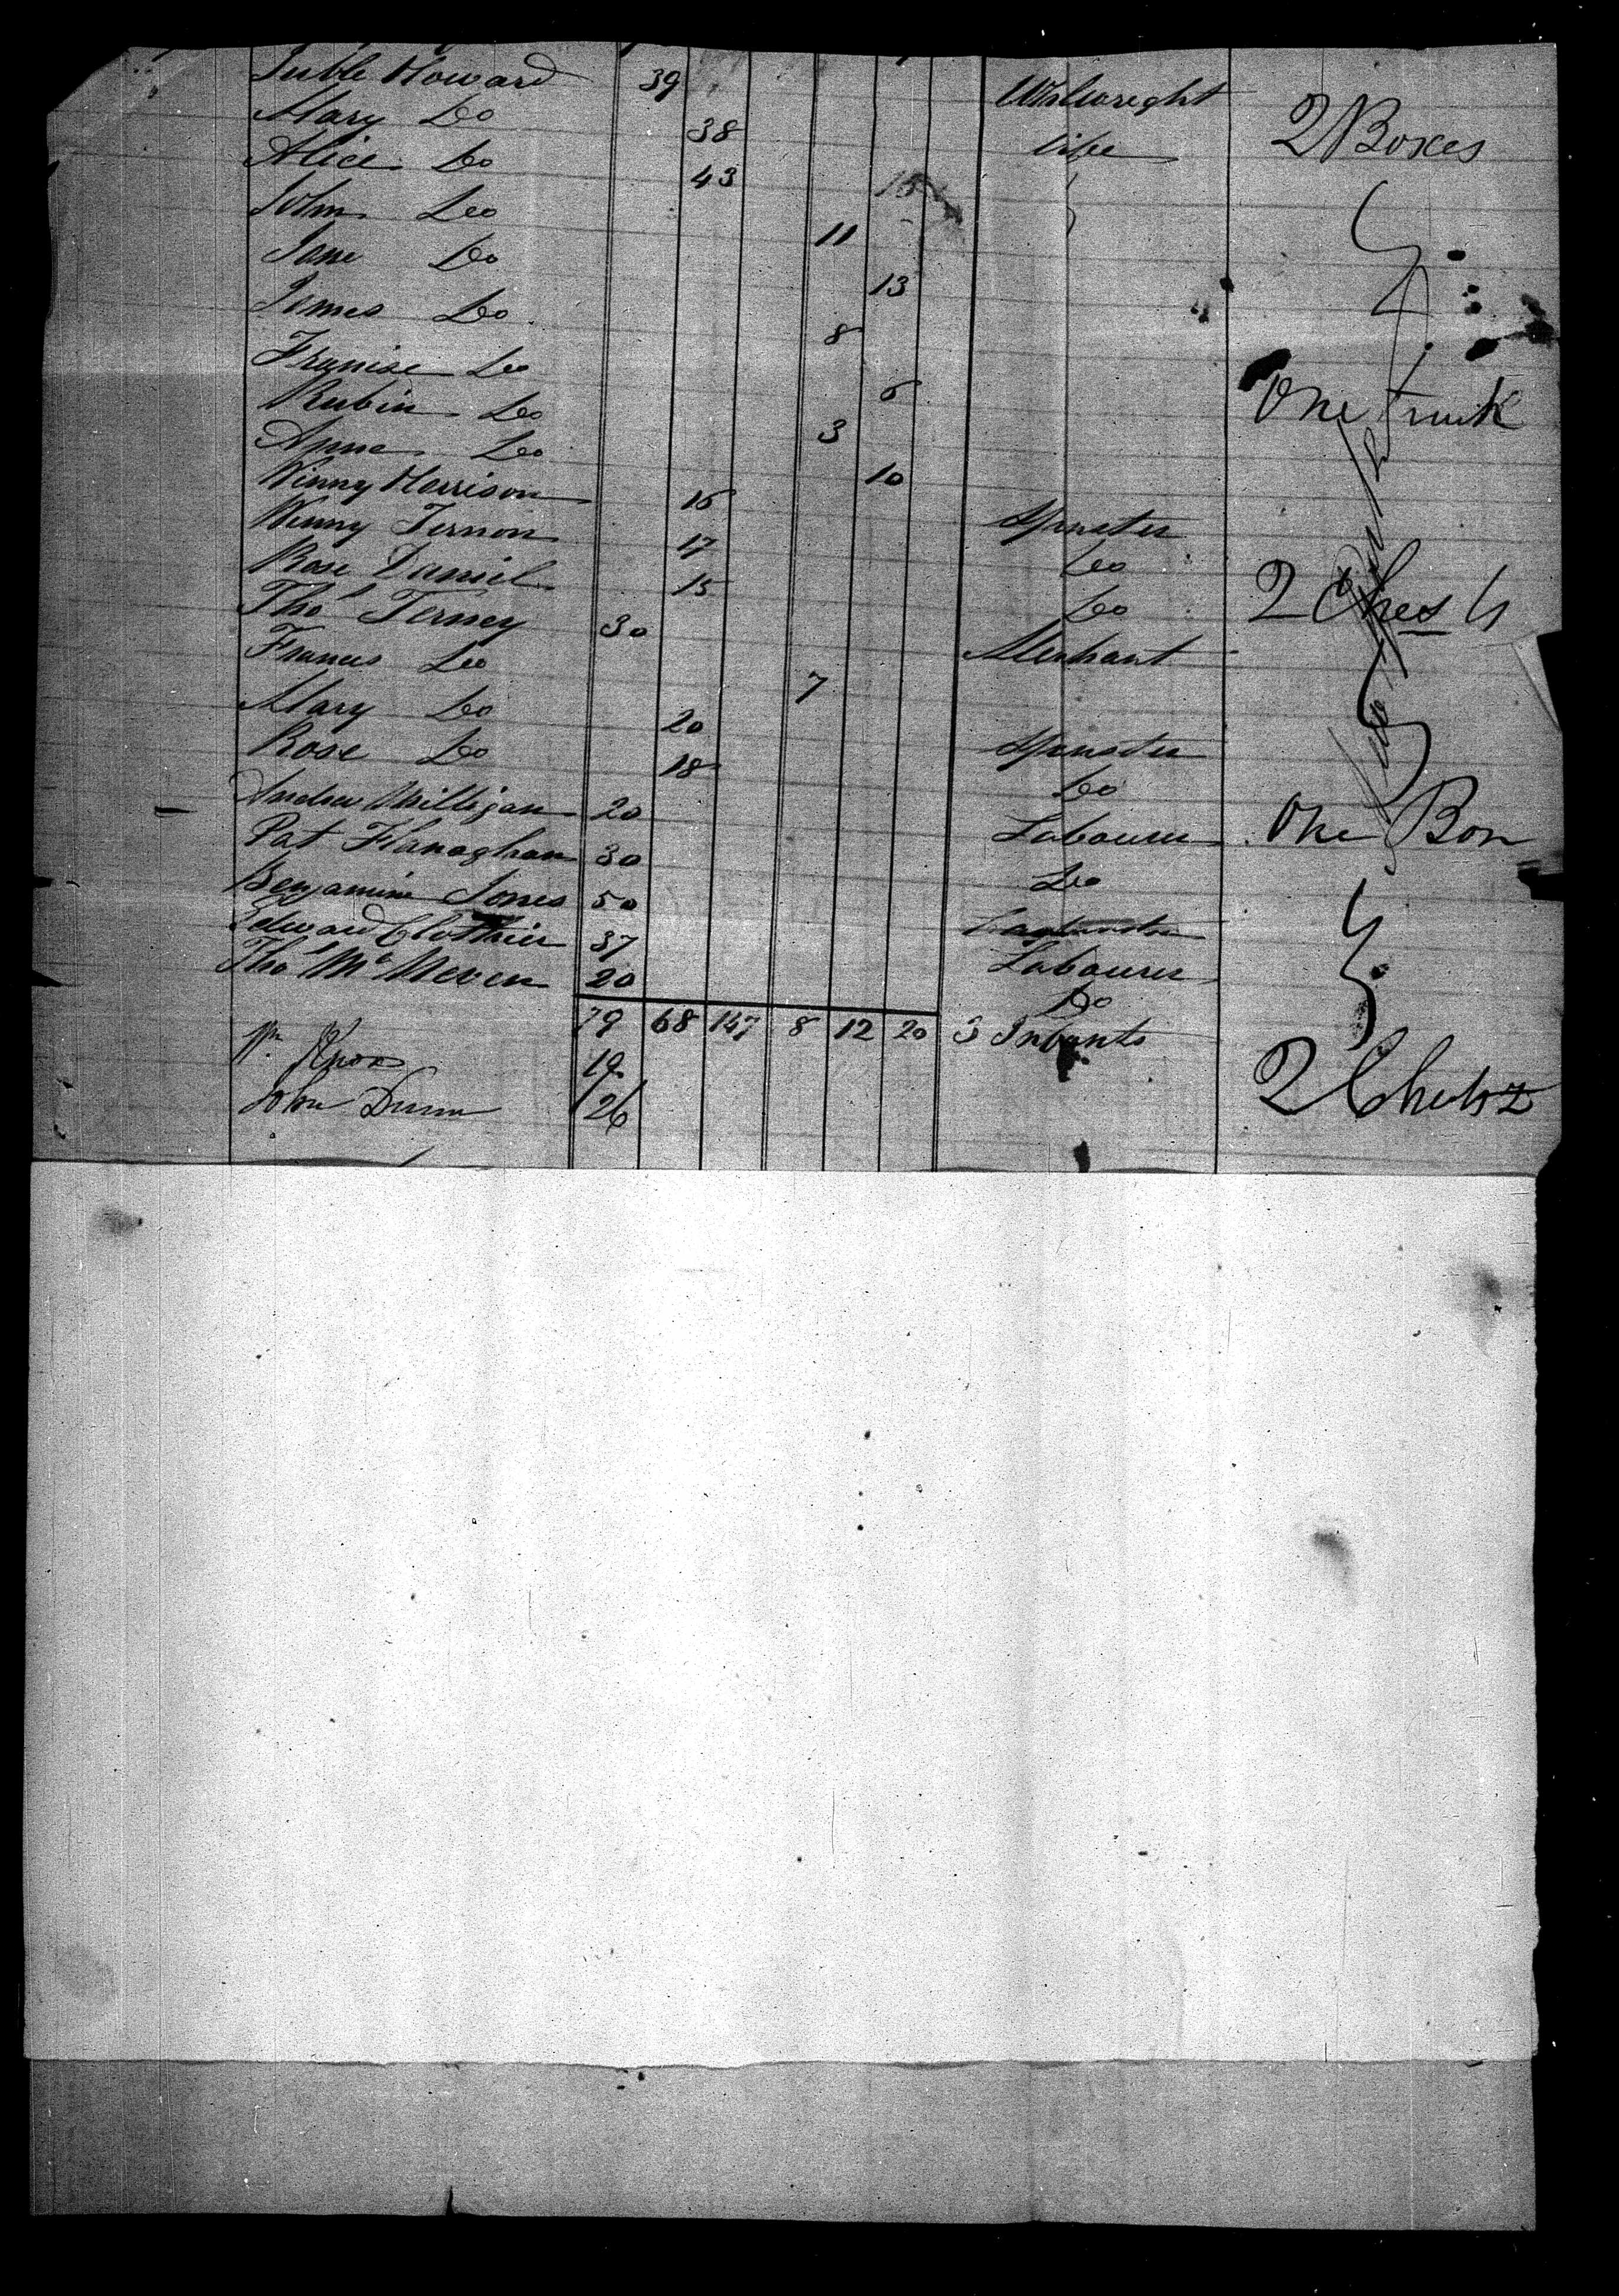 Howard 39 Whlwreght
Mary Do 38 Wife 2 Boxes
Alice Do 43 15
John Do 11
Jane Do 13
James Do 8
Do 6
Rubin Do 3 One trunk
Anne Do 10
Winny Harrison 16 Spinster
Winny Ternon 17 Do
Rose Daniel 15 Do 2 Chests
Thos Terney 30 Merchant
Francis Do 7
Mary Do 20 Spinster
Rose Do 18 Do
Andrew Milligan 20 Labourer One Box
Pat Flanaghan 30 Do
Benjamine Jones 50
Edward Clothier 37 Labourer
Thos McNeven 20 Do
79 68 147 8 12 20 3 Infants
Wm Knox 19
John Dunn 26 2 Chests